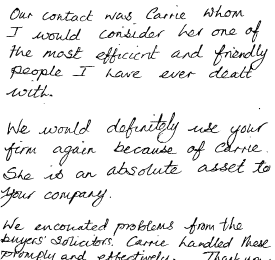 Our contact was Carrie whom
I would consider her one of
the most efficient and friendly
people I have ever dealt
with.
We would definitely use your
firm again because of Carrie.
She is an absolute asset to
your company.
We encouated problems from the
buyers' solicitors. Carrie handled these
promply and effectively. Thank you